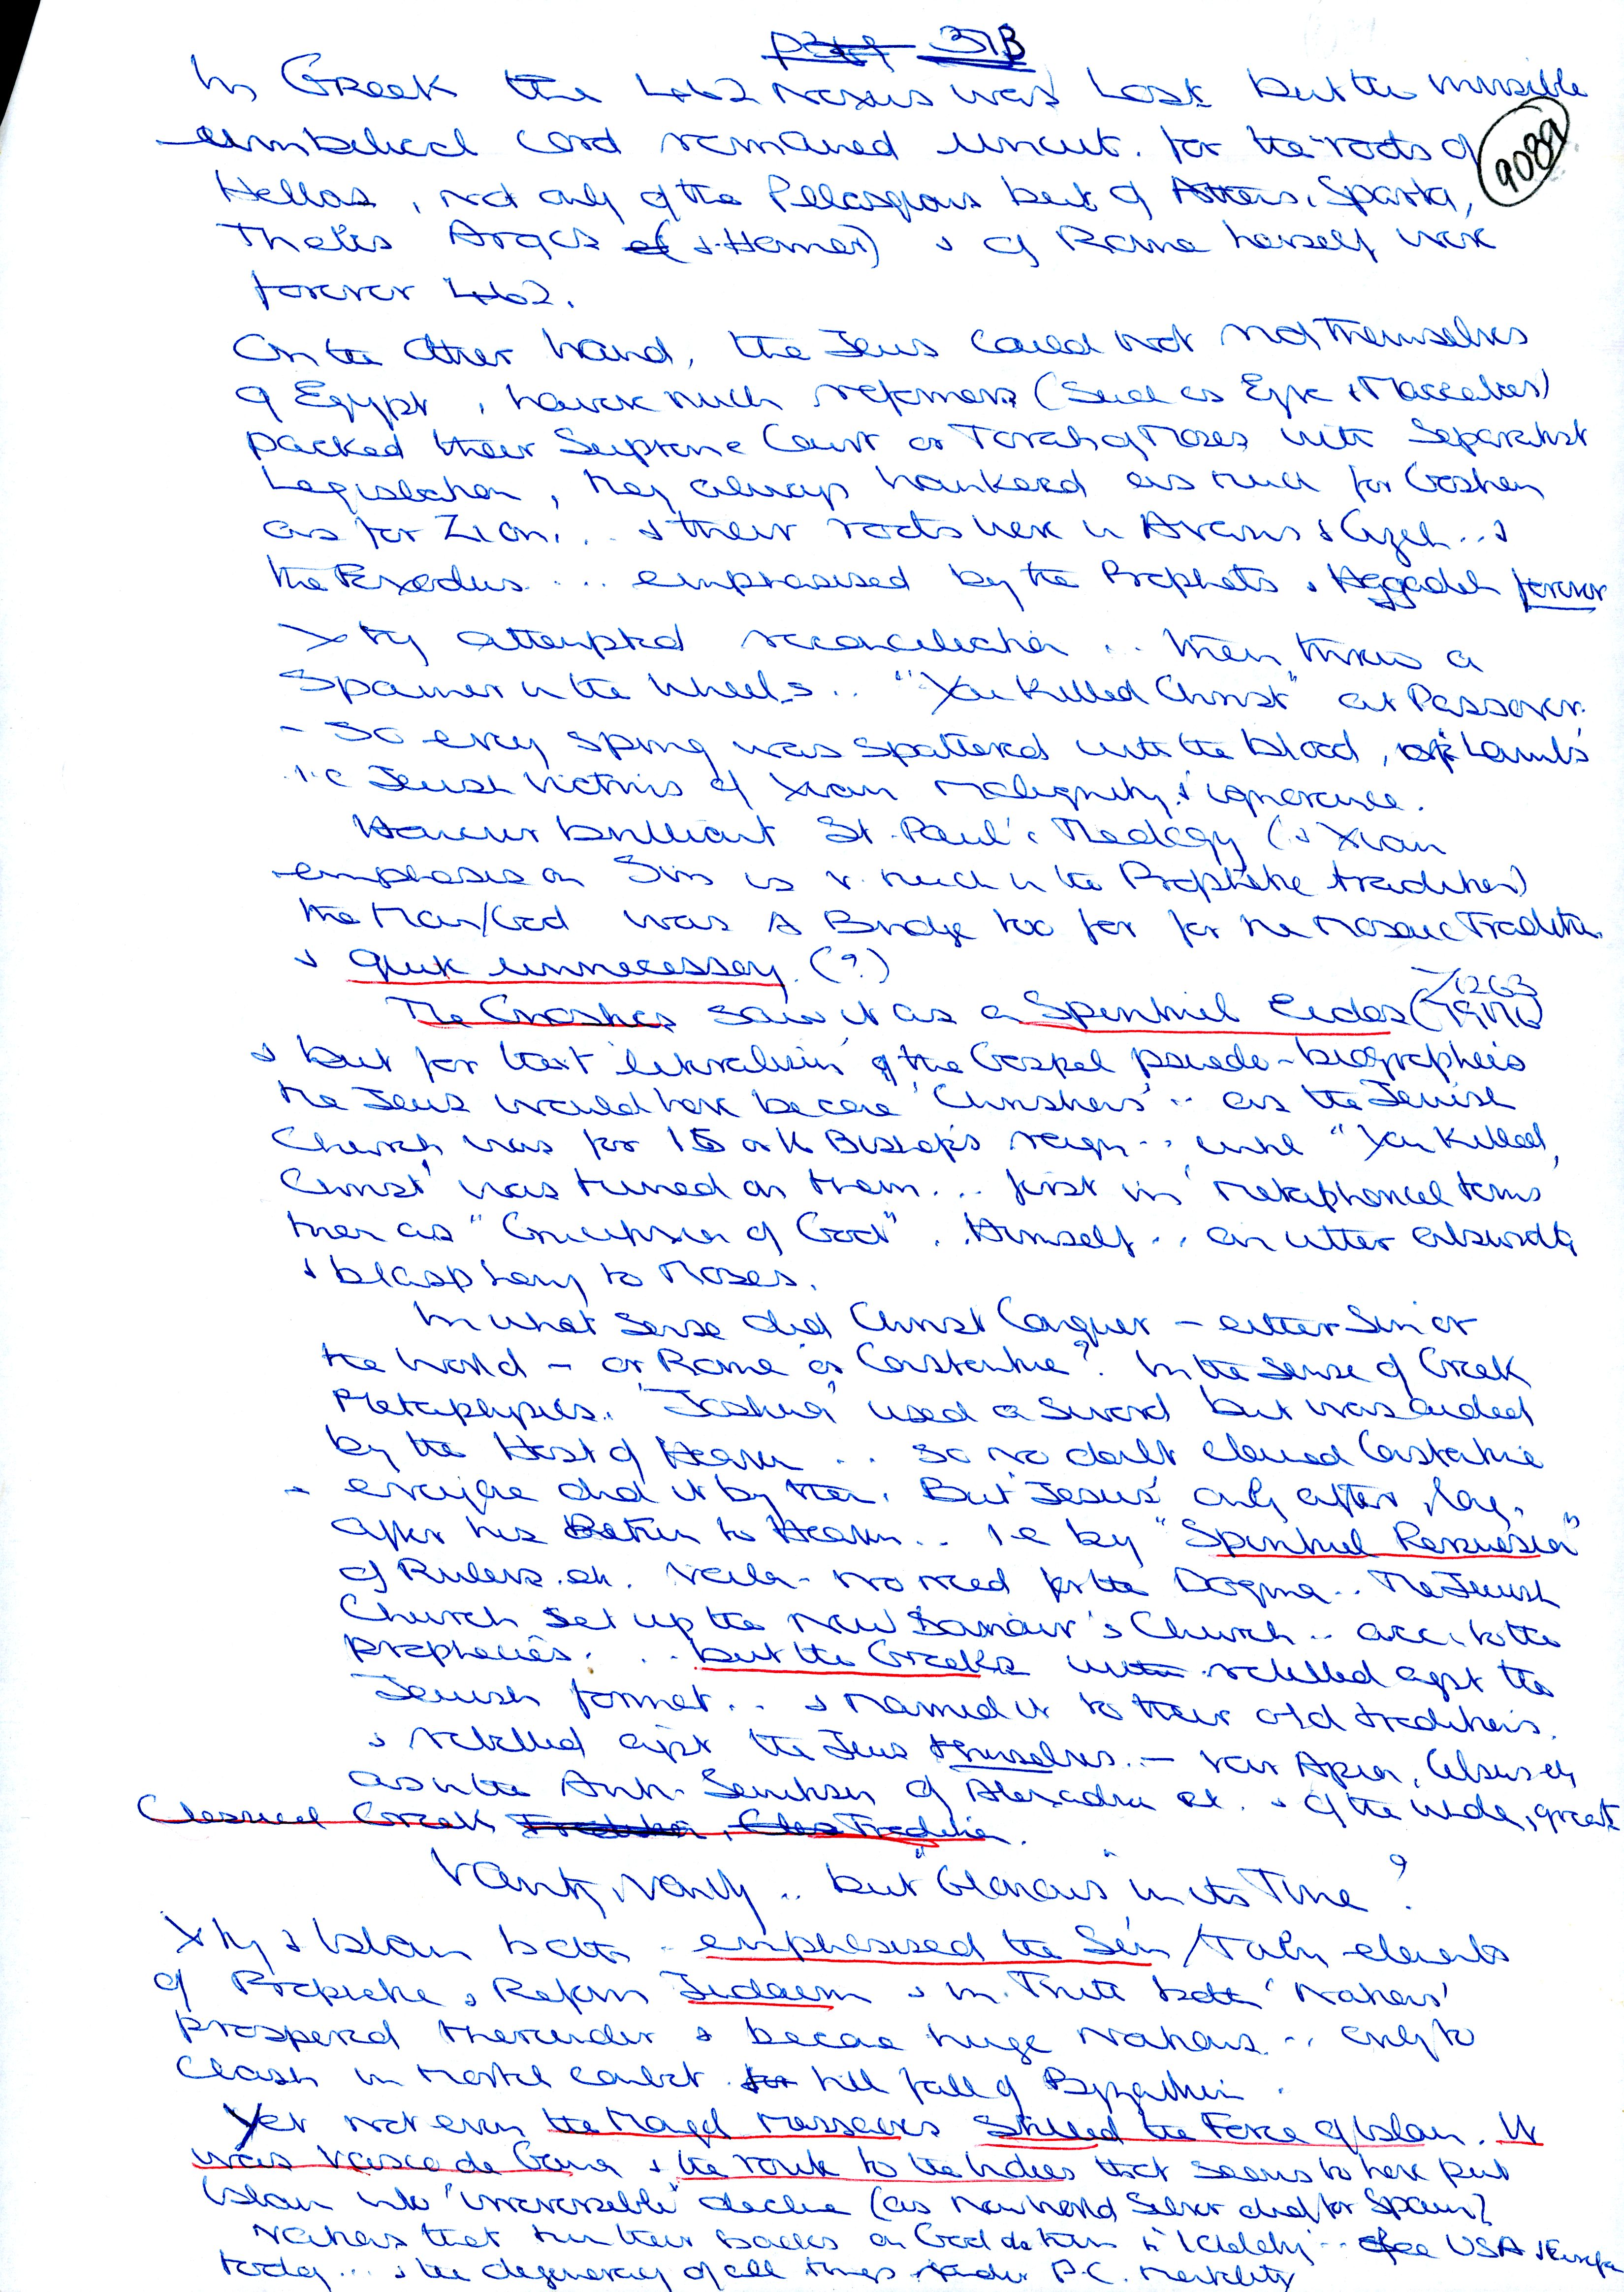 37B
In Greek the 4462 Nexus was Lost but the invisible
umbilical cord remained uncut. for the roots of
9089
Hellas, not only of the Pellasgians but of Athens, Sparta,
Thebes Argos (& Homer) & of Rome herself were
forever 4462.
On the Other hand, the Jews could not rid themselves
of Egypt, however much reformers (Such as Ezra & Maccabees)
packed their Supreme Court or Torah of Moses with Separatist
Legislation, they always hankered as much for Goshen
as for Zion... & their roots were in Avaris & Gizeh... &
the Exodus... emphasised by the Prophets & Haggadah forever
Xty attempted reconciliation .. then threw a
Spanner in the Wheels.. "You Killed Christ" at Passover.
- So every spring was spattered with the blood, of Lambs
i.e Jewish Victims of Xian Malignity & ignorance.
However brilliant St. Paul's Theology (& Xian
emphasis on Sin is v. much in the Prophetic tradition)
the Man/God was A Bridge too far for the Mosaic Tradition
& quite unnecessary. (?)
The Gnostics saw it as a Spiritual Eidos (
& but for that 'literalism' of the Gospel pseudo-biographies
the Jews would have become 'Christians'.. as the Jewish
Church was for 15 or 16 Bishops reign.. until "You Killed
Christ' was turned on them... first in metaphorical terms
then as "Crucifixion of God".. Himself.. an utter absurdity
& blasphemy to Moses.
In what Sense did Christ Conquer - either Sin or
the World - or Rome or Constantine? In the Sense of Greek
Metaphysics. 'Joshua' used a Sword but was aided
by the Host of Heaven .. So no doubt claimed Constantine
- everyone did it by then. But 'Jesus' only after
after his Return to Heaven.. i.e by "Spiritual Persuasion"
of Rulers. etc. no need for the Dogma.. The Jewish
Church Set up the New Saviour's Church.. acc. to the
prophecies... but the Greeks rebelled agst the
Jewish format.. & married it to their old traditions.
& rebelled agst the Jews themselves.. - Apion, Celsus etc
as in the Anti-Semitism of Alexandria etc. & of the whole, great
Classical Greek Tradition.
Vanity, Vanity .. but "Glorious" in its Time?
Xty & Islam both emphasised the Sin / elements
of Prophetic & Reform Judaism & in Truth both 'Nations'
prospered thereunder & became huge Nations .. only to
Clash in Mortal combat till fall of Byzantium.
Yet not even the Mongol Massacres Stilled the Force of Islam. It
was Vasco de Gama & the route to the Indies that seems to have put
Islam into "irreversible" decline (as New World Silver did for Spain)
Nations that turn their backs on God do turn to Idolatry .. USA & Europe
today... & the degeneracy of all things under P.C. Mentality